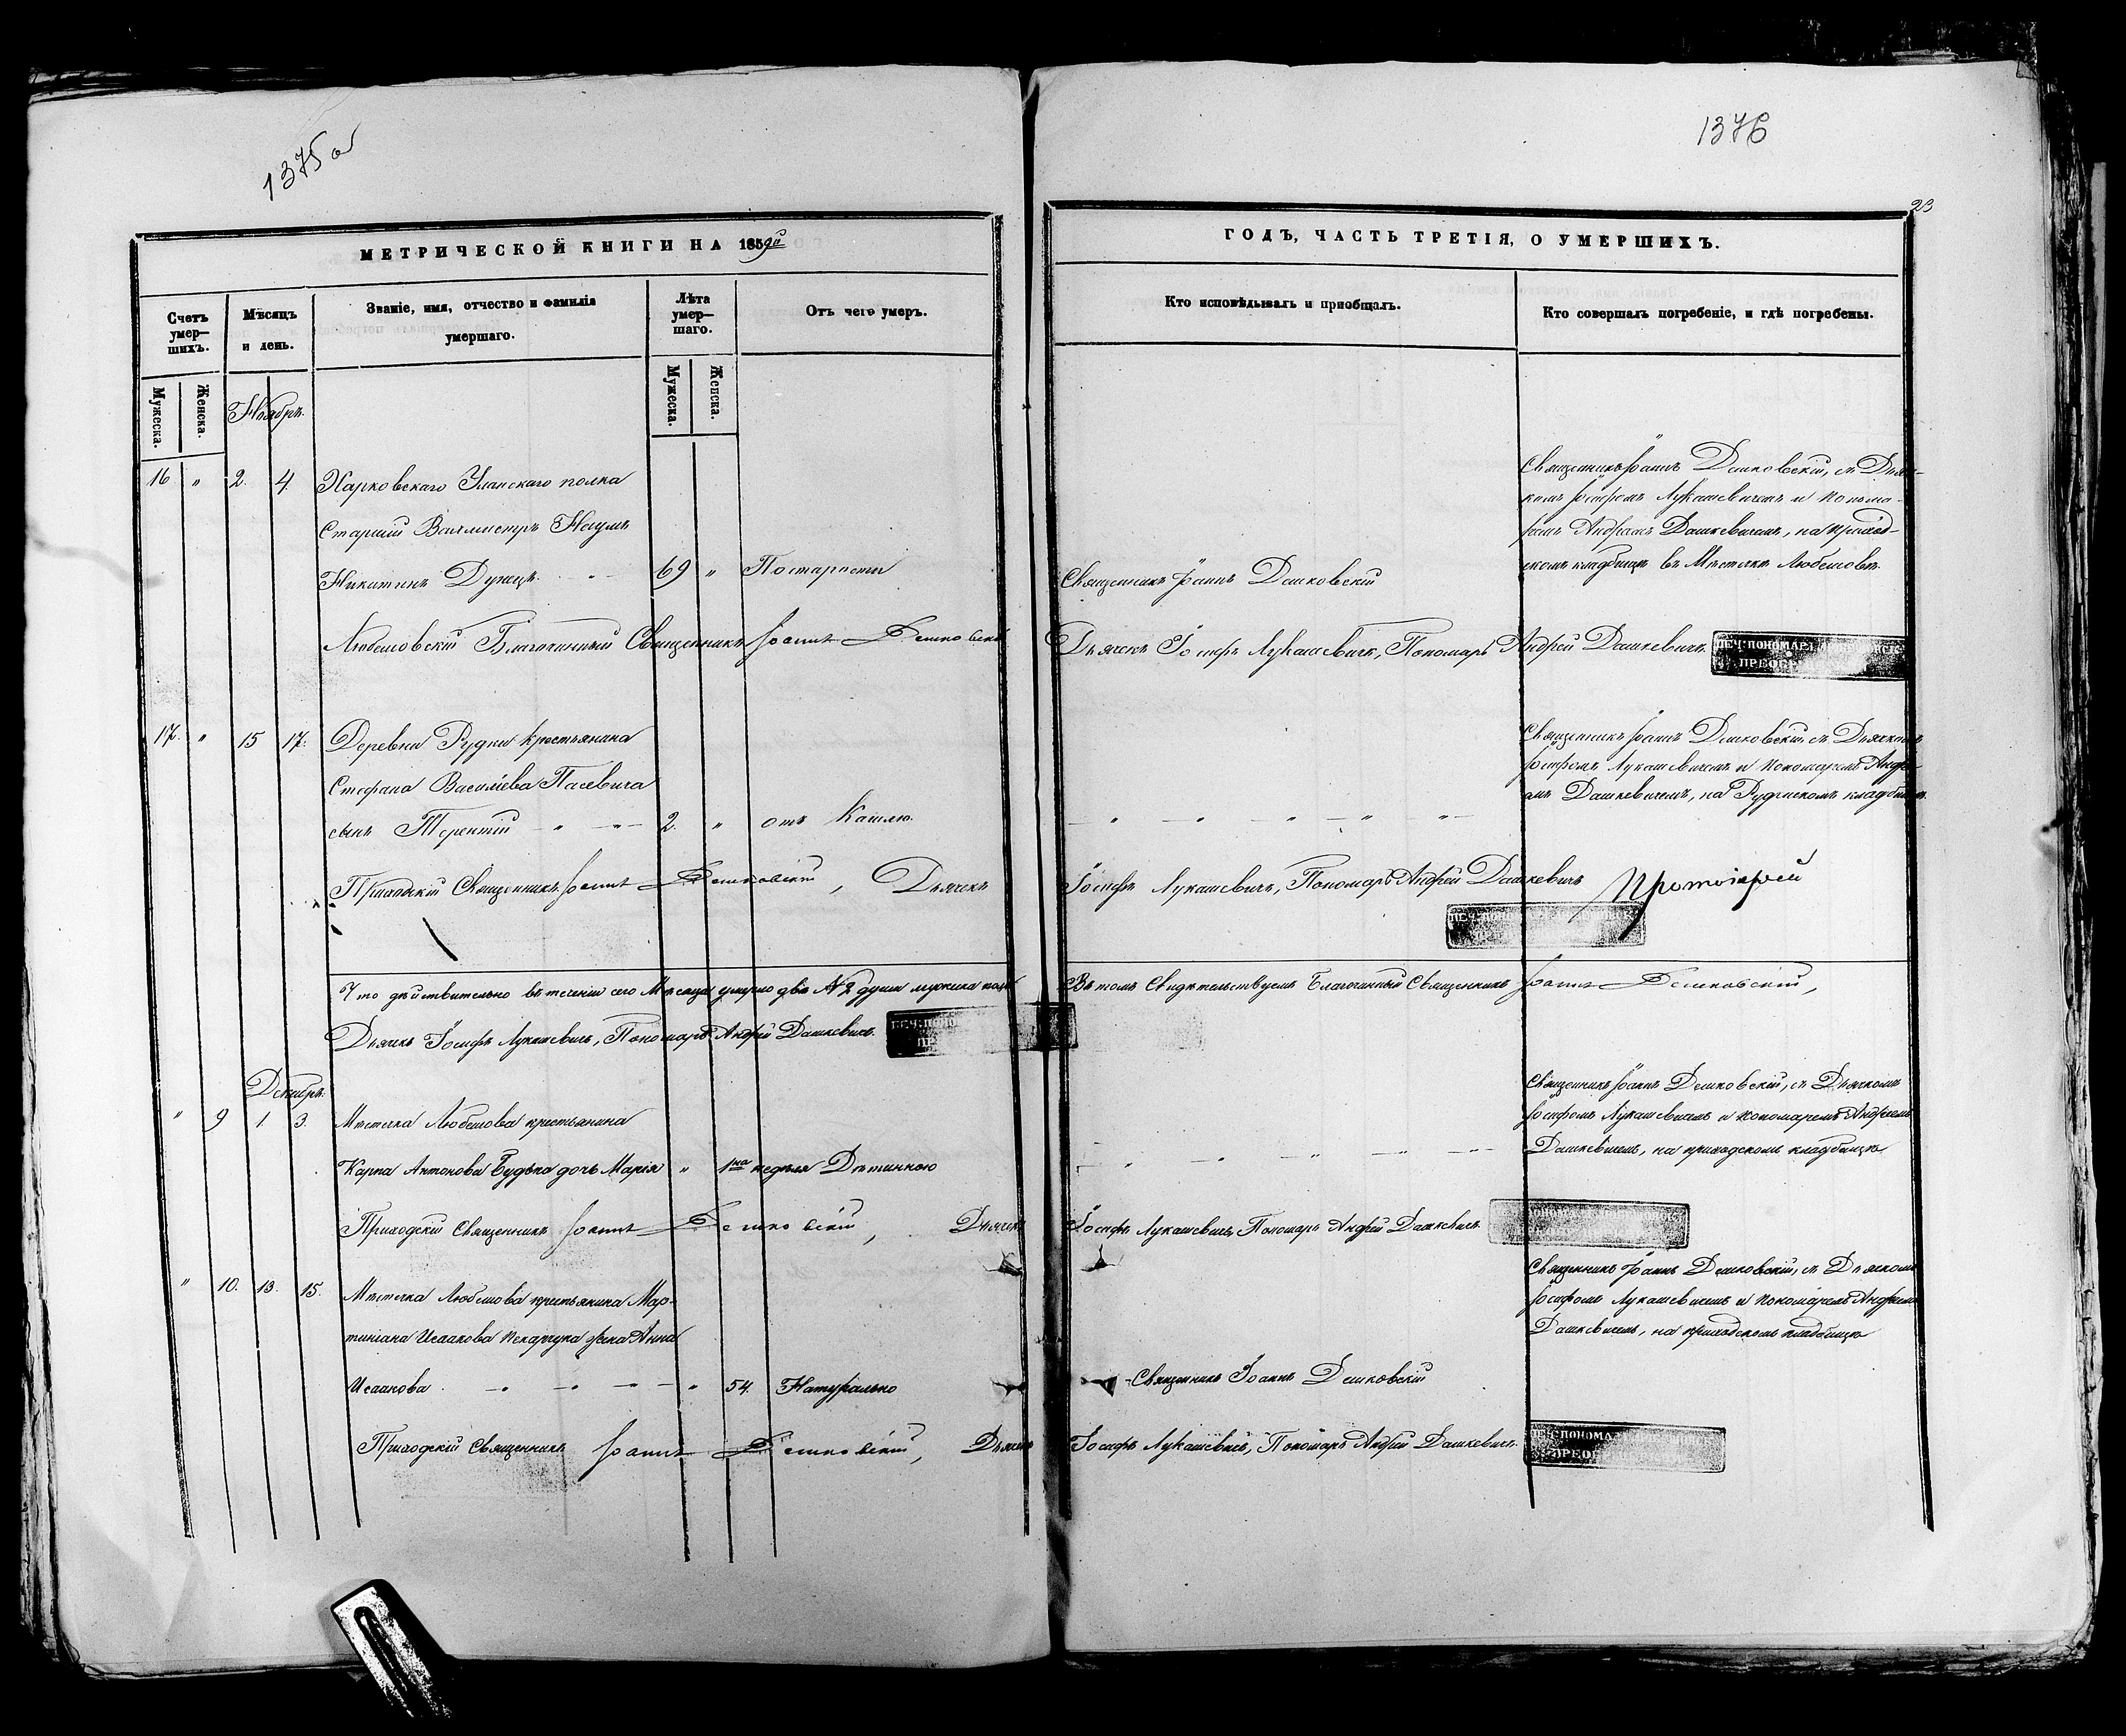 1375 а
1376
23
МЕТРИЧЕСКОЙ КНИГИ НА 1859й
ГОДЪ, ЧАСТЬ ТРЕТІЯ, О УМЕРШИХЪ.
Счетъ умер—шихъ.
Мѣсяцъ и день.
Званіе, имя, отчество и фамилія умершаго.
Лѣта умер—шаго.
Отъ чего умеръ.
Кто исповѣдывалъ и приобщалъ.
Кто совершалъ погребеніе, и гдѣ погребены.
Мужеска.
Женска.
Мужеска.
Женска.
Ноябрь.
16 " 2. 4. Харковскаго Уланскаго полка
Старшій Вахмистръ Наумъ
Никитинъ 69 " По старости
Священникъ Іоаннъ Дешковскій
Священникъ Іоаннъ Дешковскій, съ Дьяч-
комъ Іосифомъ Лукашевичемъ и Понома-
ремъ Андреемъ Дашкевичемъ, на приход-
скомъ кладбищѣ въ Мѣстечкѣ Любешовѣ.
Любешовскій Благочинный Священникъ Іоаннъ Дешковскій
Дьячекъ Іосифъ Лукашевичъ, Пономарь Андрей Дашкевичъ.
ПЕЧ: ПОНОМАР.
ПРЕОБ
17. " 15 17. Деревни Рудки крестьянина
Стефана Василіева Пасевича
сынъ Терентій 2. " отъ Кашлю.
Священникъ Іоаннъ Дешковскій, съ Дьячкомъ
Іосифомъ Лукашевичемъ и пономаремъ Андре-
емъ Дашкевичемъ, на Рудчискомъ кладбищѣ.
Приходскій Священникъ Іоаннъ Дешковскій, Дьячекъ
Іосифъ Лукашевичъ, Пономарь Андрей Дашкевичъ
Протоіерей
Что дѣйствительно въ теченіи сего Мѣсяца умерло два № 2 души мужеска пола
Въ томъ Свидѣтельствуемъ Благочинный Священникъ Іоаннъ Дешковскій,
Дьячекъ Іосифъ Лукашевичъ, Пономарь Андрей Дашкевичъ.
Декабрь.
" 9 1. 3. Мѣстечка Любешова крестьянина
Карпа Антонова Будька дочь Марія " 1на недѣля Дѣтинною
Священникъ Іоаннъ Дешковскій, съ Дьячкомъ
Іосифомъ Лукашевичемъ и пономаремъ Андреемъ
Дашкевичемъ, на приходскомъ кладбищѣ
Приходскій Священникъ Іоаннъ Дешковскій, Дьячекъ
Іосифъ Лукашевичъ, Пономарь Андрей Дашкевичъ.
" 10. 13. 15. Мѣстечка Любешова крестьянина Мар-
тиніана Исаакова Пекарчука жена Анна
Исаакова. " 54. Натурально
Священникъ Іоаннъ Дешковскій
Священникъ Іоаннъ Дешковскій, съ Дьячкомъ
Іосифомъ Лукашевичемъ и пономаремъ Андреемъ
Дашкевичемъ, на приходскомъ кладбищѣ
Приходскій Священникъ Іоаннъ Дешковскій, Дьячекъ
Іосифъ Лукашевичъ, Пономарь Андрей Дашкевичъ.